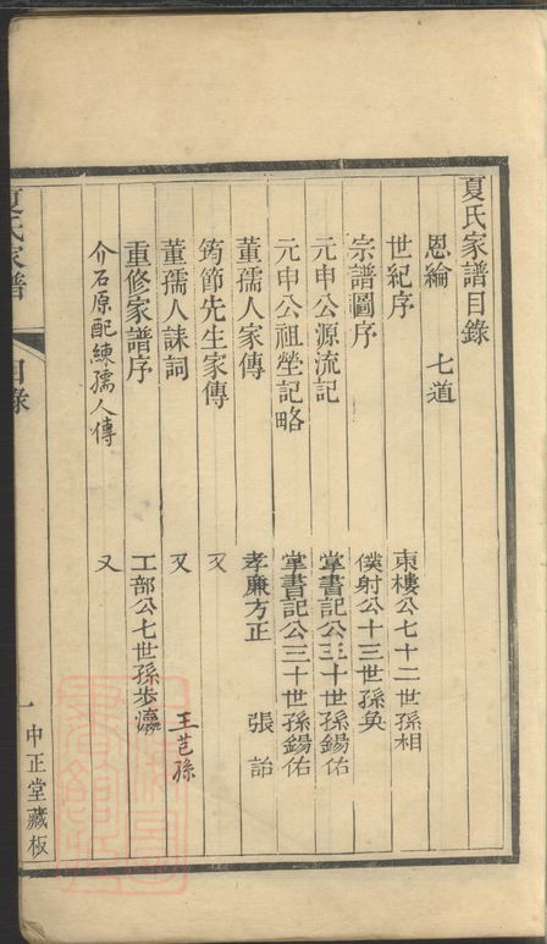 夏氏家譜目錄
恩綸 七道
世紀序 東樓公七十二世孫相
宗譜圖序 僕射公十三世孫奐
元申公源流記 掌書記公三十世孫錫佑
元申公祖塋記略 掌書記公三十世孫錫佑
董孺人家傳 孝廉方正 張詒
筠節先生家傳 又
董孺人誄詞 又 王芑孫
重修家譜序 工部公七世孫步瀛
介石原配練孺人傳 又
夏氏家譜 目錄 一 中正堂藏板